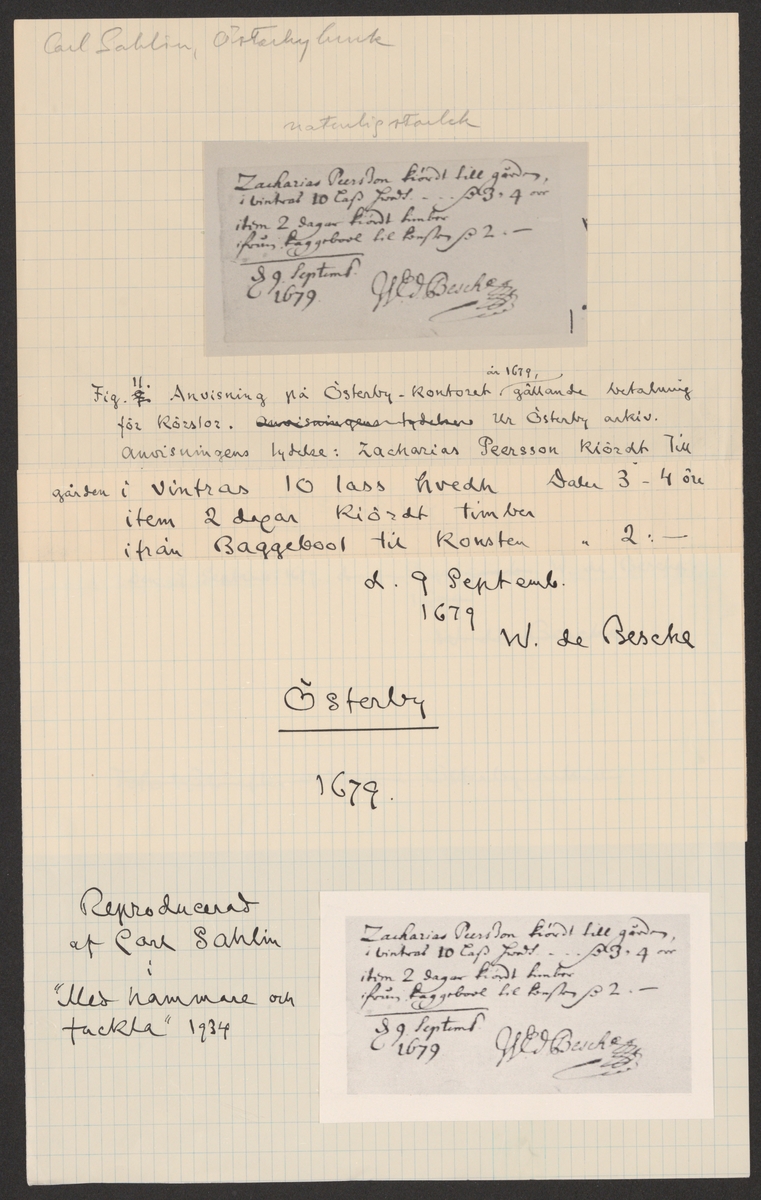 Carl Sahlin, Österbybruk
naturlig storlek
Zacharias Peersson kiördt till gården,
i vintras 10 lass hvedh - . . - 3 - 4 öre
item 2 dagar kiördt timber
ifrån Baggebool til konsten 2 . —
d 9 Septemb.
1679. WDBesche
Fig. 11. Anvisning på Österby-kontoret år 1679, gällande betalning
för körslor. Anvisningens lydelse Ur Österby arkiv.
Anvisningens lydelse: Zacharias Peersson Kiördt Till
gården i vintras 10 lass hvedh Daler 3 - 4 öre
item 2 dagar Kiördt timber
ifrån Baggebool til Konsten " 2:—
d. 9 Septemb.
1679
W. de Besche
Österby
1679.
Reproducerad
af Carl Sahlin
i
"Med hammare och
fackla" 1934
Zacharias Peersson kiördt till gården,
i vintras 10 lass hvedh - . . - 3 - 4 öre
item 2 dagar kiördt timber
ifrån Baggebool til konsten 2 . —
d 9 Septemb
1679 WDBesche